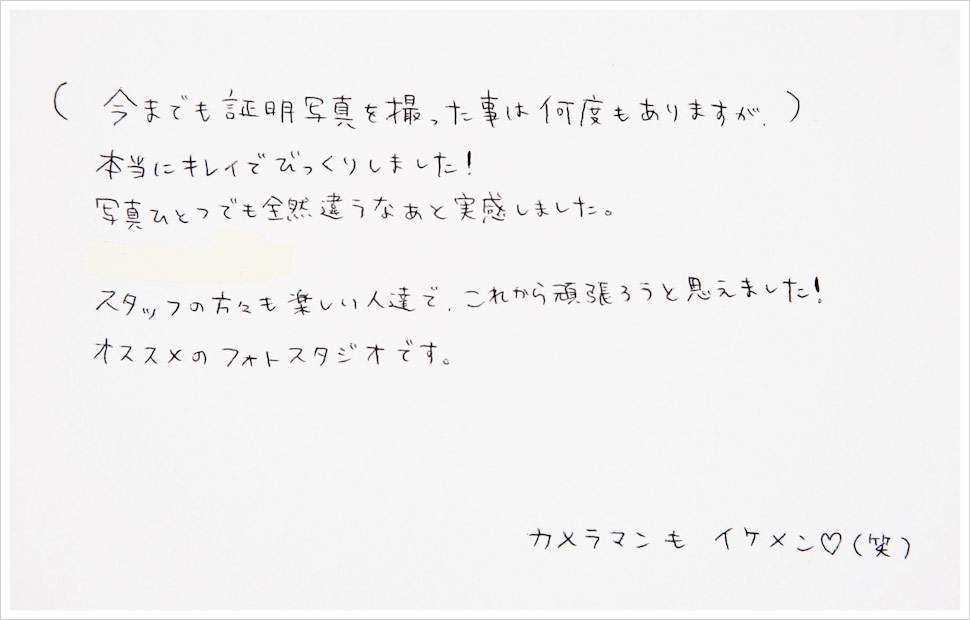 ( 今までも証明写真を撮った事は何度もありますが、)
本当にキレイでびっくりしました!
写真ひとつでも全然違うなあと実感しました。
スタッフの方々も楽しい人達で、これから頑張ろうと思えました!
オススメのフォトスタジオです。
カメラマンも イケメン♡(笑)